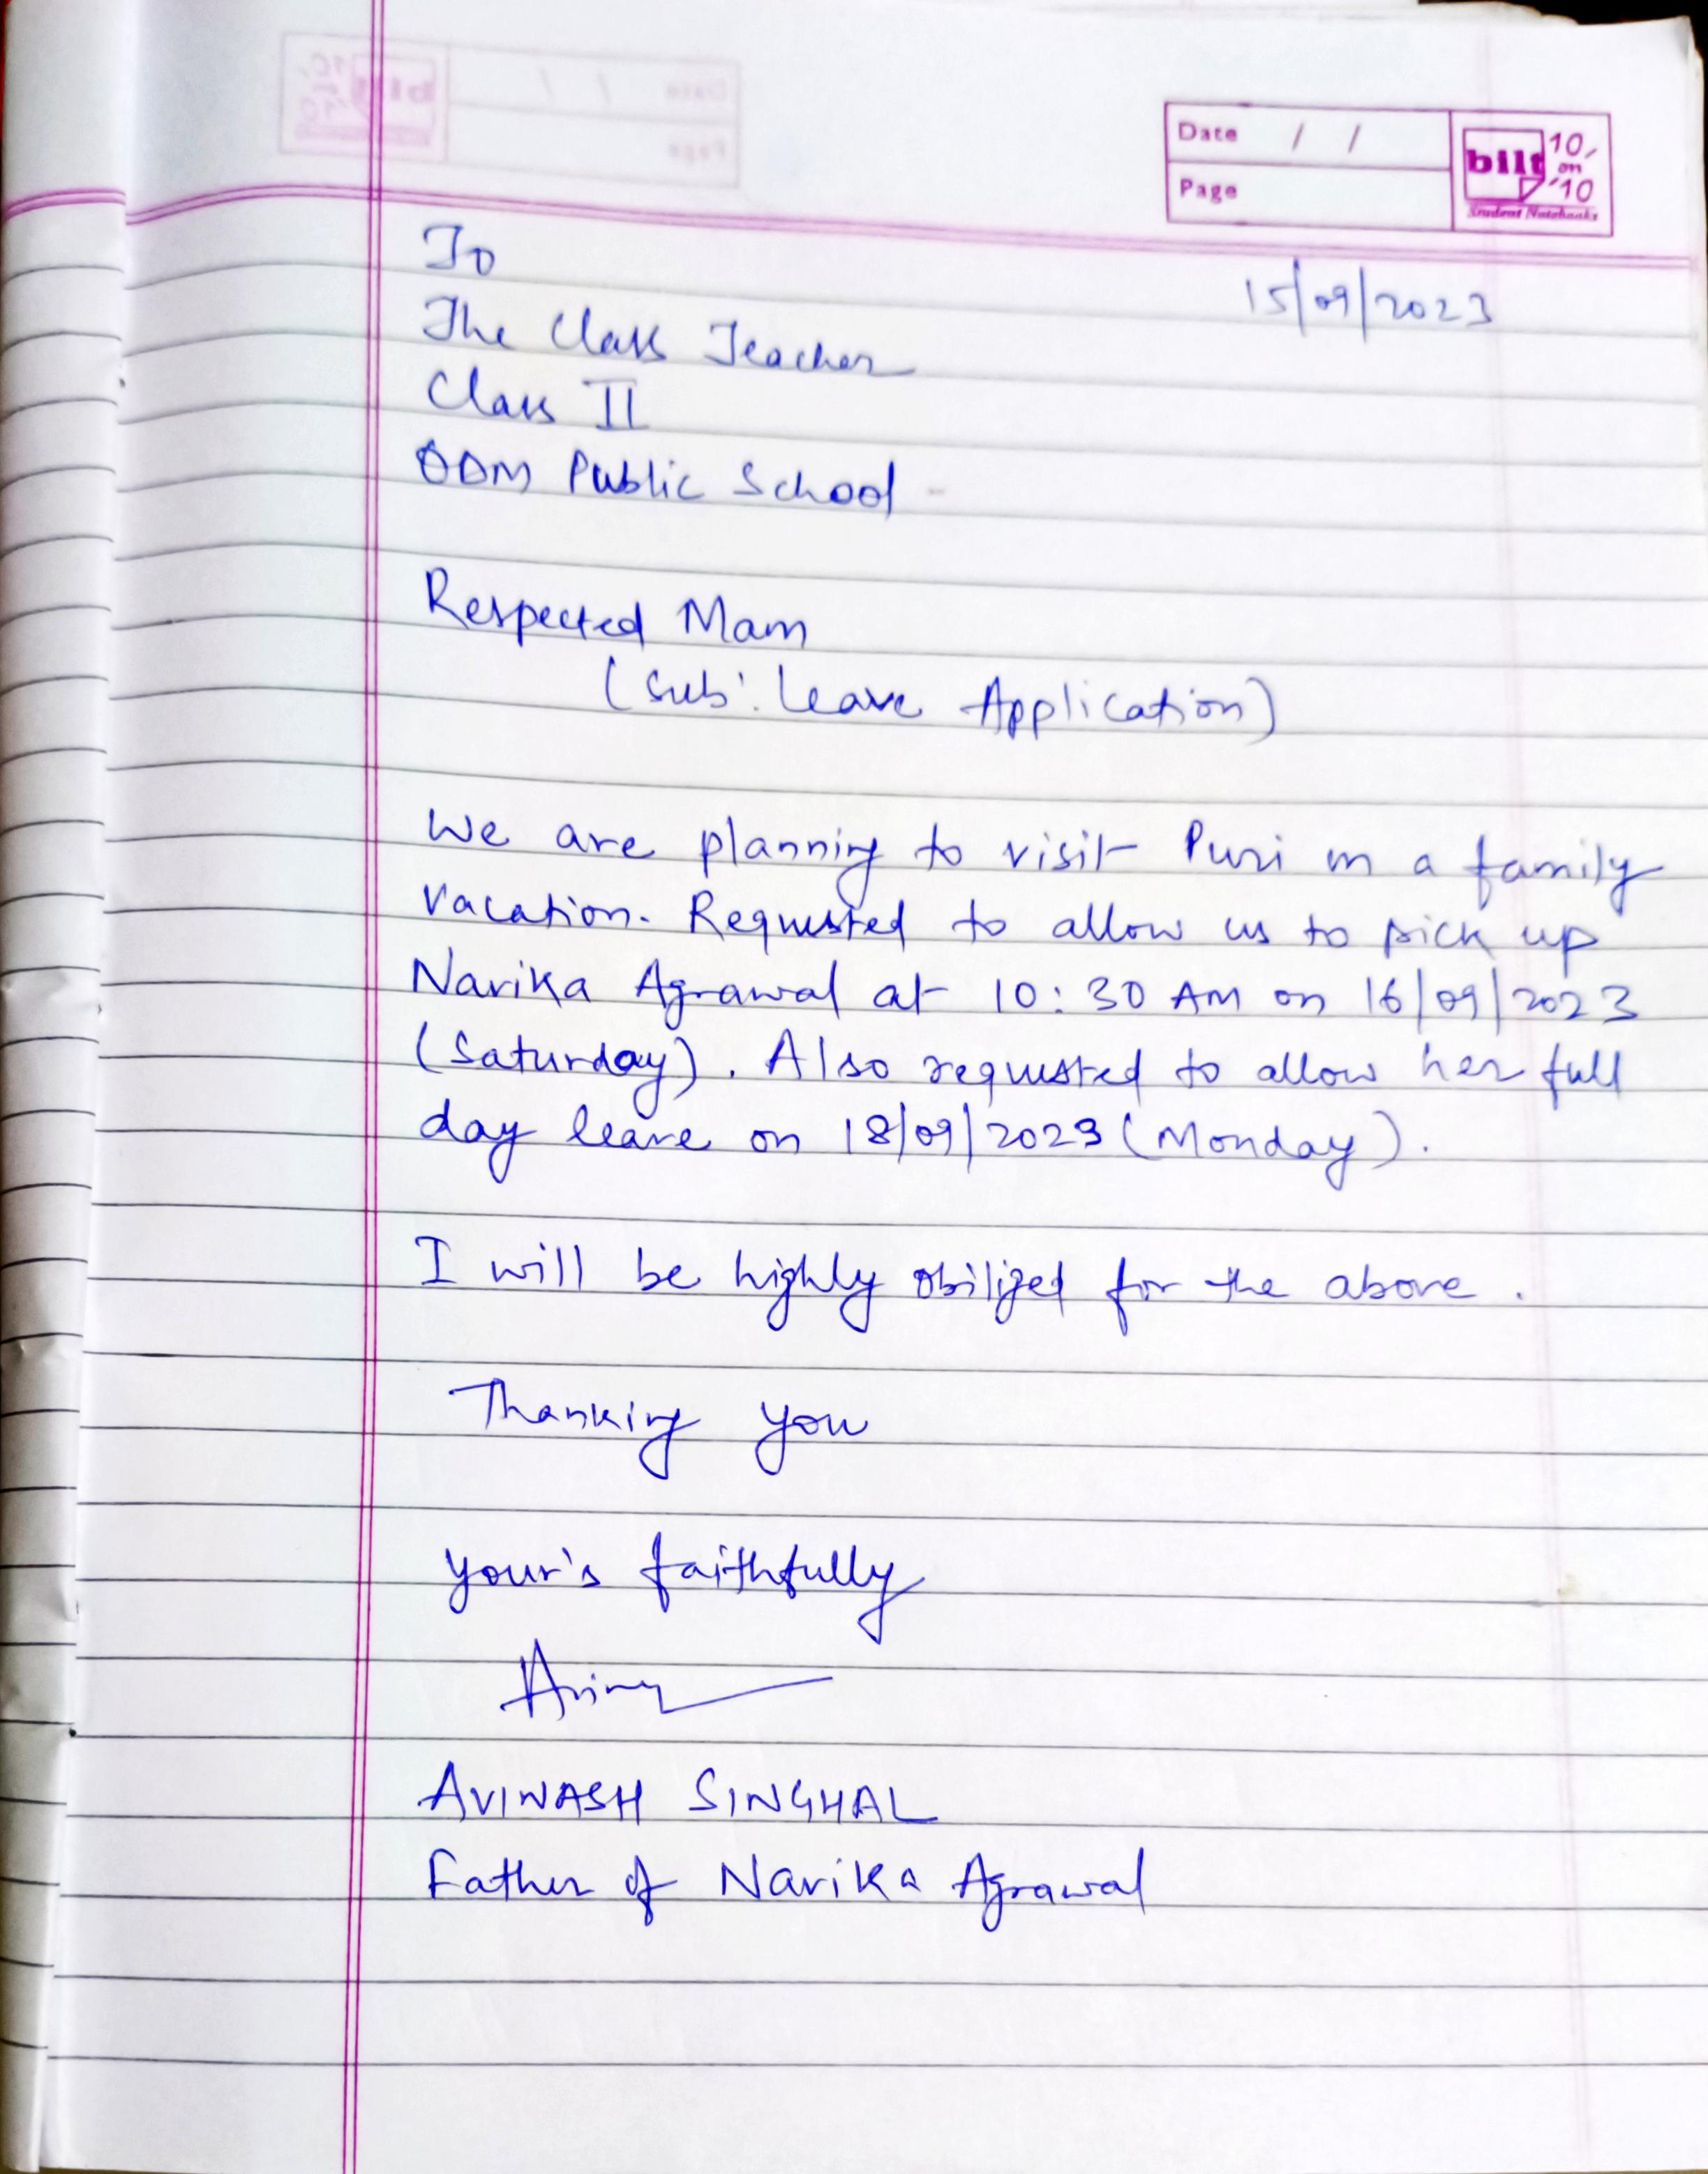 Date / /
Page
bilt 10 on 10
Student Notebooks
To
15/09/2023
The Class Teacher
Class II
ODM Public School
Respected Mam
(Sub: Leave Application)
We are planning to visit Puri in a family
vacation. Requested to allow us to pick up
Navika Agrawal at 10:30 AM on 16/09/2023
(Saturday). Also requested to allow her full
day leave on 18/09/2023 (Monday).
I will be highly obiliged for the above.
Thanking you
Your's faithfully
AVINASH SINGHAL
Father of Navika Agrawal